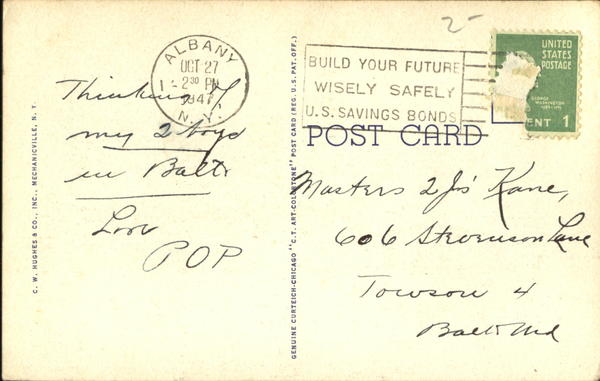 2-
ALBANY
OCT 27
2 30 PM
1947
N.Y.
BUILD YOUR FUTURE
WISELY SAFELY
U.S. SAVINGS BONDS
UNITED
STATES
POSTAGE
GEORGE
WASHINGTON
ENT 1
POST CARD
Thinking of
my 2 boys
in Balto
Love
POP
Masters 2 Js' Kane,
606 Stevenson Lane
Towson 4
Balto Md
C. W. HUGHES & CO., INC., MECHANICVILLE, N. Y.
GENUINE CURTEICH-CHICAGO "C.T. ART-COLORTONE" POST CARD (REG. U.S. PAT. OFF.)